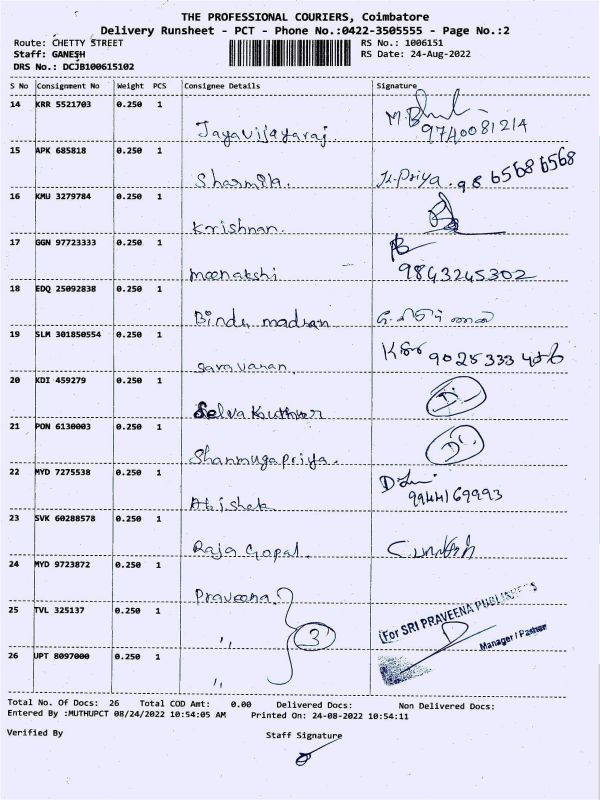 THE PROFESSIONAL COURIERS, Coimbatore
Delivery Runsheet - PCT - Phone No.:0422-3505555 - Page No.:2
Route: CHETTY STREET RS No.: 1006151
Staff: GANESH RS Date: 24-Aug-2022
DRS No.: DCJB100615102
S No Consignment No Weight PCS Consignee Details Signature
14 KRR 5521703 0.250 1
Jayavijayaraj. 9740081214
15 APK 685818 0.250 1
Sharmila. Priya. 98 6568 6568
16 KMU 3279784 0.250 1
Krishnan.
17 GGN 97723333 0.250 1
Meenakshi 9843245302
18 EDQ 25092838 0.250 1
Bindu madhan
19 SLM 301850554 0.250 1
Saravanan.
20 KDI 459279 0.250 1
21 PON 6130003 0.250 1
Shanmugapriya.
22 MYD 7275538 0.250 1
Abishek 9944169993
23 SVK 60288578 0.250 1
Raja Gopal.
24 MYD 9723872 0.250 1
Praveena.
25 TVL 325137 0.250 1
,, 3 (For SRI PRAVEENA PUBLISHERS
Manager / Partner
26 UPT 8097000 0.250 1
,,
Total No. Of Docs: 26 Total COD Amt: 0.00 Delivered Docs: Non Delivered Docs:
Entered By :MUTHUPCT 08/24/2022 10:54:05 AM Printed On: 24-08-2022 10:54:11
Verified By Staff Signature